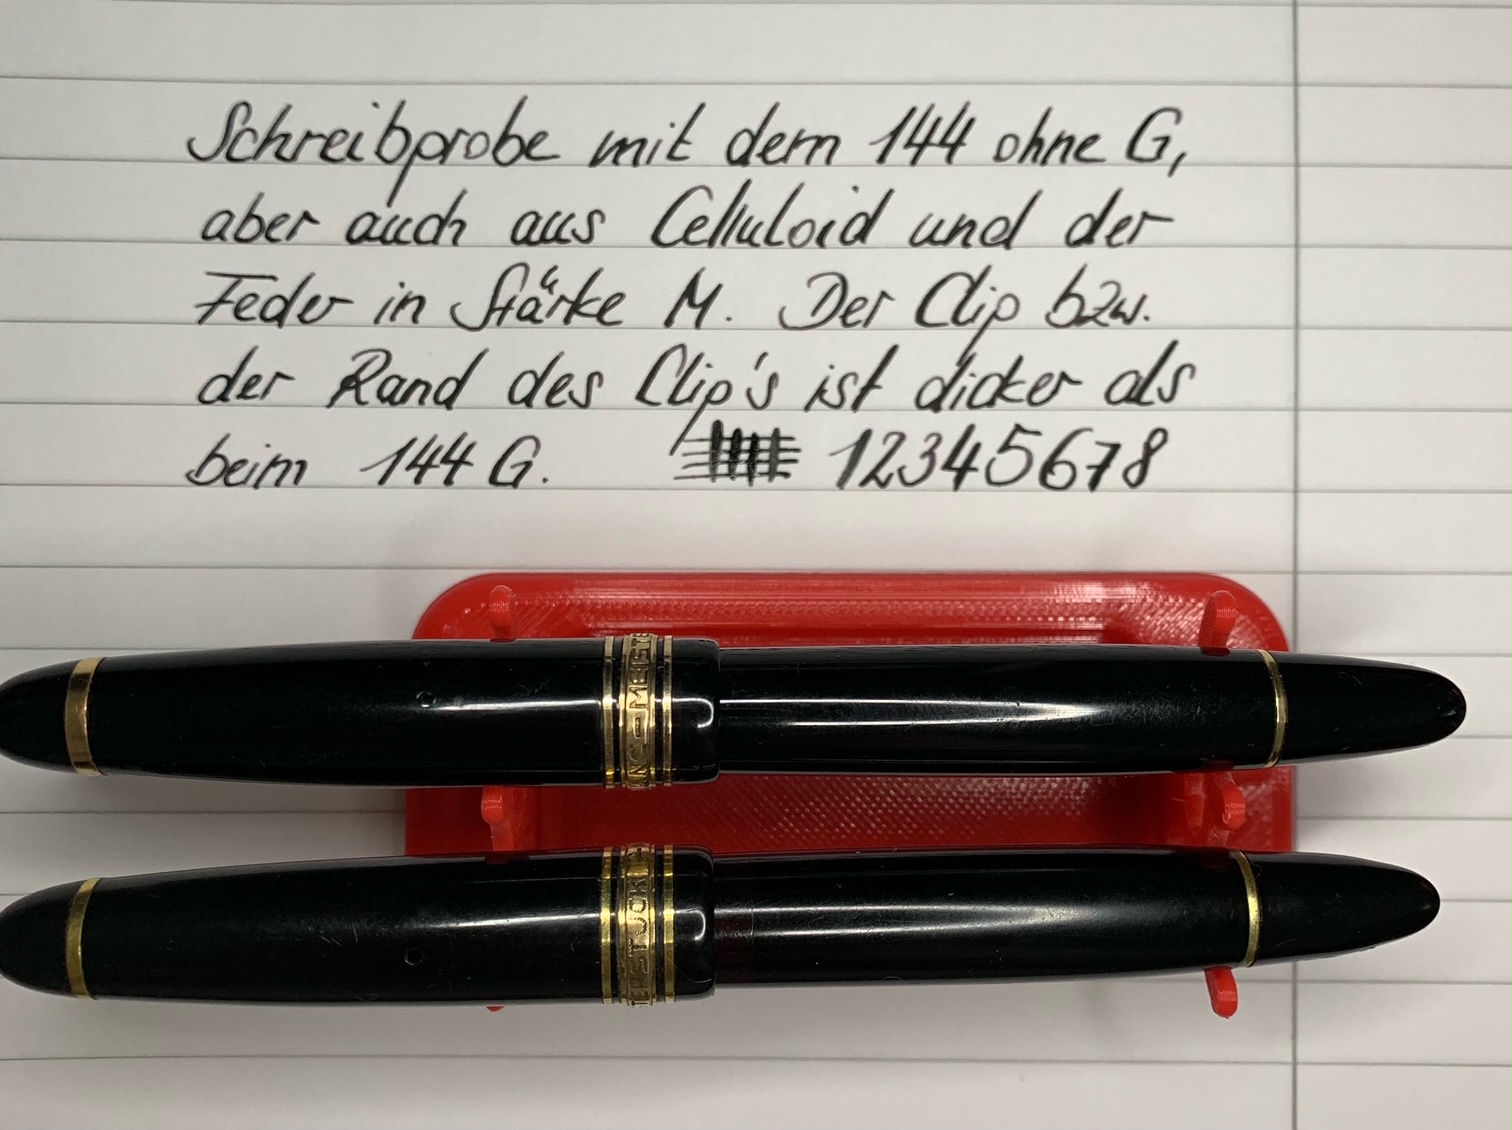 Schreibprobe mit dem 144 ohne G,
aber auch aus Celluloid und der
Feder in Stärke M. Der Clip bzw.
der Rand des Clip's ist dicker als
beim 144 G. 12345678